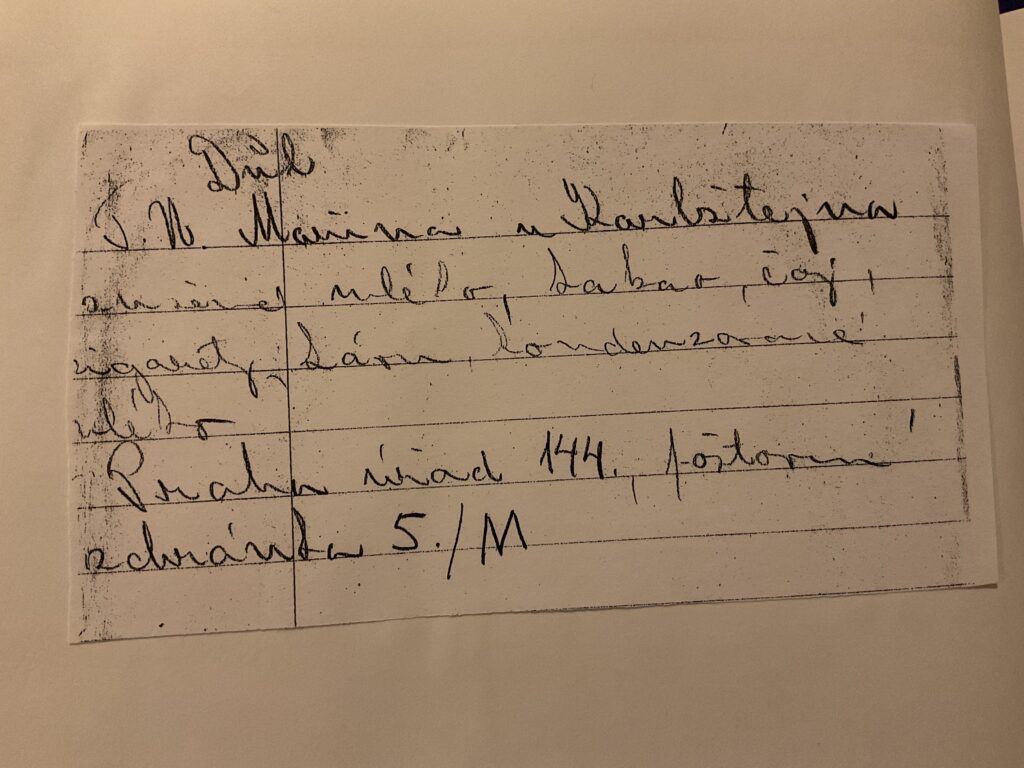 Důl
J. W. Mořina u Karlštejna
sušené mléko, kakao, čaj,
cigarety, kávu, kondenzované
mléko
Praha úřad 144., poštovní
schránka 5./M